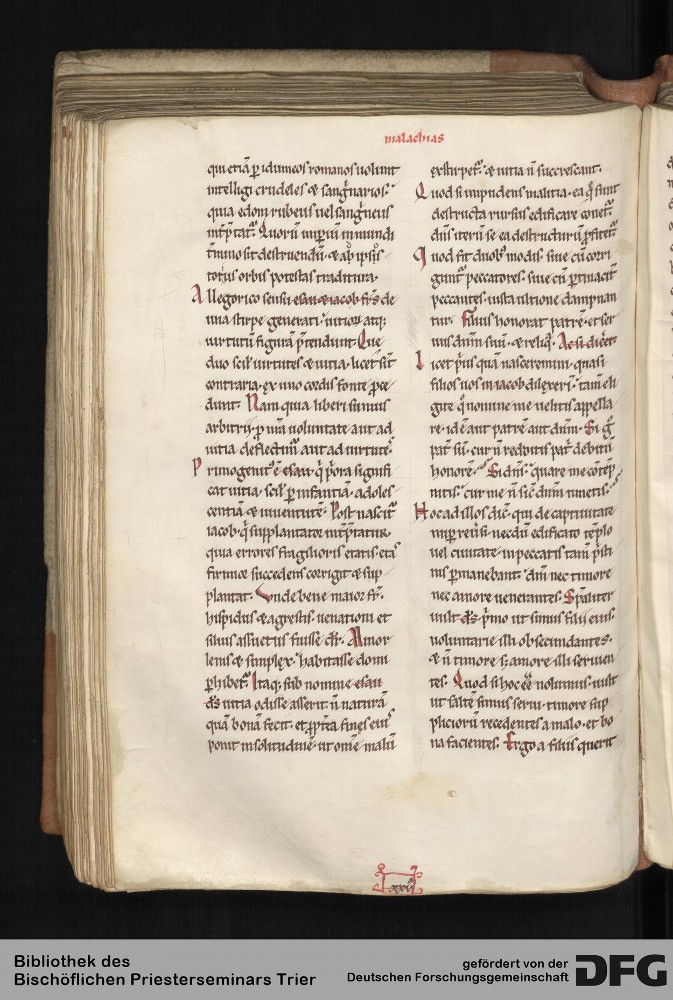 malachias
qui etiā ꝑ idumeos romanos uolunt
intelligi crudeles & sangͥnarios.
quia edom rubeus uel sangͥneus
int̄p̄tat᷑. Quorū imꝑiū in mundi
t̄mino sit destruendū. & ab ipsis
totius orbis potestas traditura.
Allegorico sensu esau & iacob fr̄s de
una stirpe generati. uitiorū atq;
uirtutū figurā p̄tendunt. Que
duo scil' uirtutes & uitia. licet sīt
contraria. ex uno cordis fonte ꝓce
dunt. Nam quia liberi sumus
arbitrii. ꝓ nr̄a uoluntate aut ad
uitia deflectim᷒ aut ad uirtutē.
Primogenit᷒ ē esau. qͥ p̄ora signifi
cat uitia. scil' ꝑ infantiā. adoles
centiā & iuuentutē. Post nascit᷑
iacob. qͥ supplantator int̄p̄tatur.
quia errores fragilioris etatis. etas
firmior succedens corrigit & sup
plantat. Unde bene maior fr̄.
hispidus & agrestis. uenationi et
siluis assuetus fuisse dr̄. Minor
lenis & simplex. habitasse domi
ꝑhibet᷑. Itaq; sub nomine esau
ds̄ uitia odisse asserit n̄ naturā
quā bonam fecit. et ꝓpt̄ea fines eius
ponit in solitudinē. ut omē malū
exstirpet᷑. & uitia n̄ succrescant.
Quod si impudens malitia. ea qͥ sunt
destructa rursus edificare conet᷑.
dn̄s iterū se ea destructurū ꝓfitet᷑.
Quod fit duob᷒ modis. siue cū corri
gunt᷑ peccatores. siue cū ꝑtinacit᷑
peccantes. iusta ultione dampnan
tur. Filius honorat patrē. et ser
uus dn̄m suū. & reliq̄. Ac si diceret.
Licet p̄us quā nasceremini. quasi
filios uos in iacob dilexerī. tam̄ eli
gite qͦ nomine me uelitis appella
re. id ē aut patrē aut dn̄m. Si gͦ
pat᷑ sū. cur n̄ redditis patͥ debitū
honorē. Si dn̄s. quare me cōtēp
nitis. cur me n̄ sic dn̄m timetis.
Hoc ad illos dic̄. qui de captiuitate
imꝑ reūsi. necdū edificato tēplo
uel ciuitate. in peccatis tam̄ p̄sti
nis ꝑmanebant. dn̄m nec timore
nec amore uenerantes. Spālit᷑
uult ds̄ p̄mo ut simus filii eius.
uoluntarie illi obsecundantes.
& n̄ timore s; amore illi seruien
tes. Quod si hoc eē nolumus. uult
ut saltē simus serui. timore sup
pliciorū recedentes a malo. et bo
na facientes. Ergo a filiis querit
Bibliothek des
Bischöflichen Priesterseminars Trier
gefördert von der
Deutschen Forschungsgemeinschaft
DFG